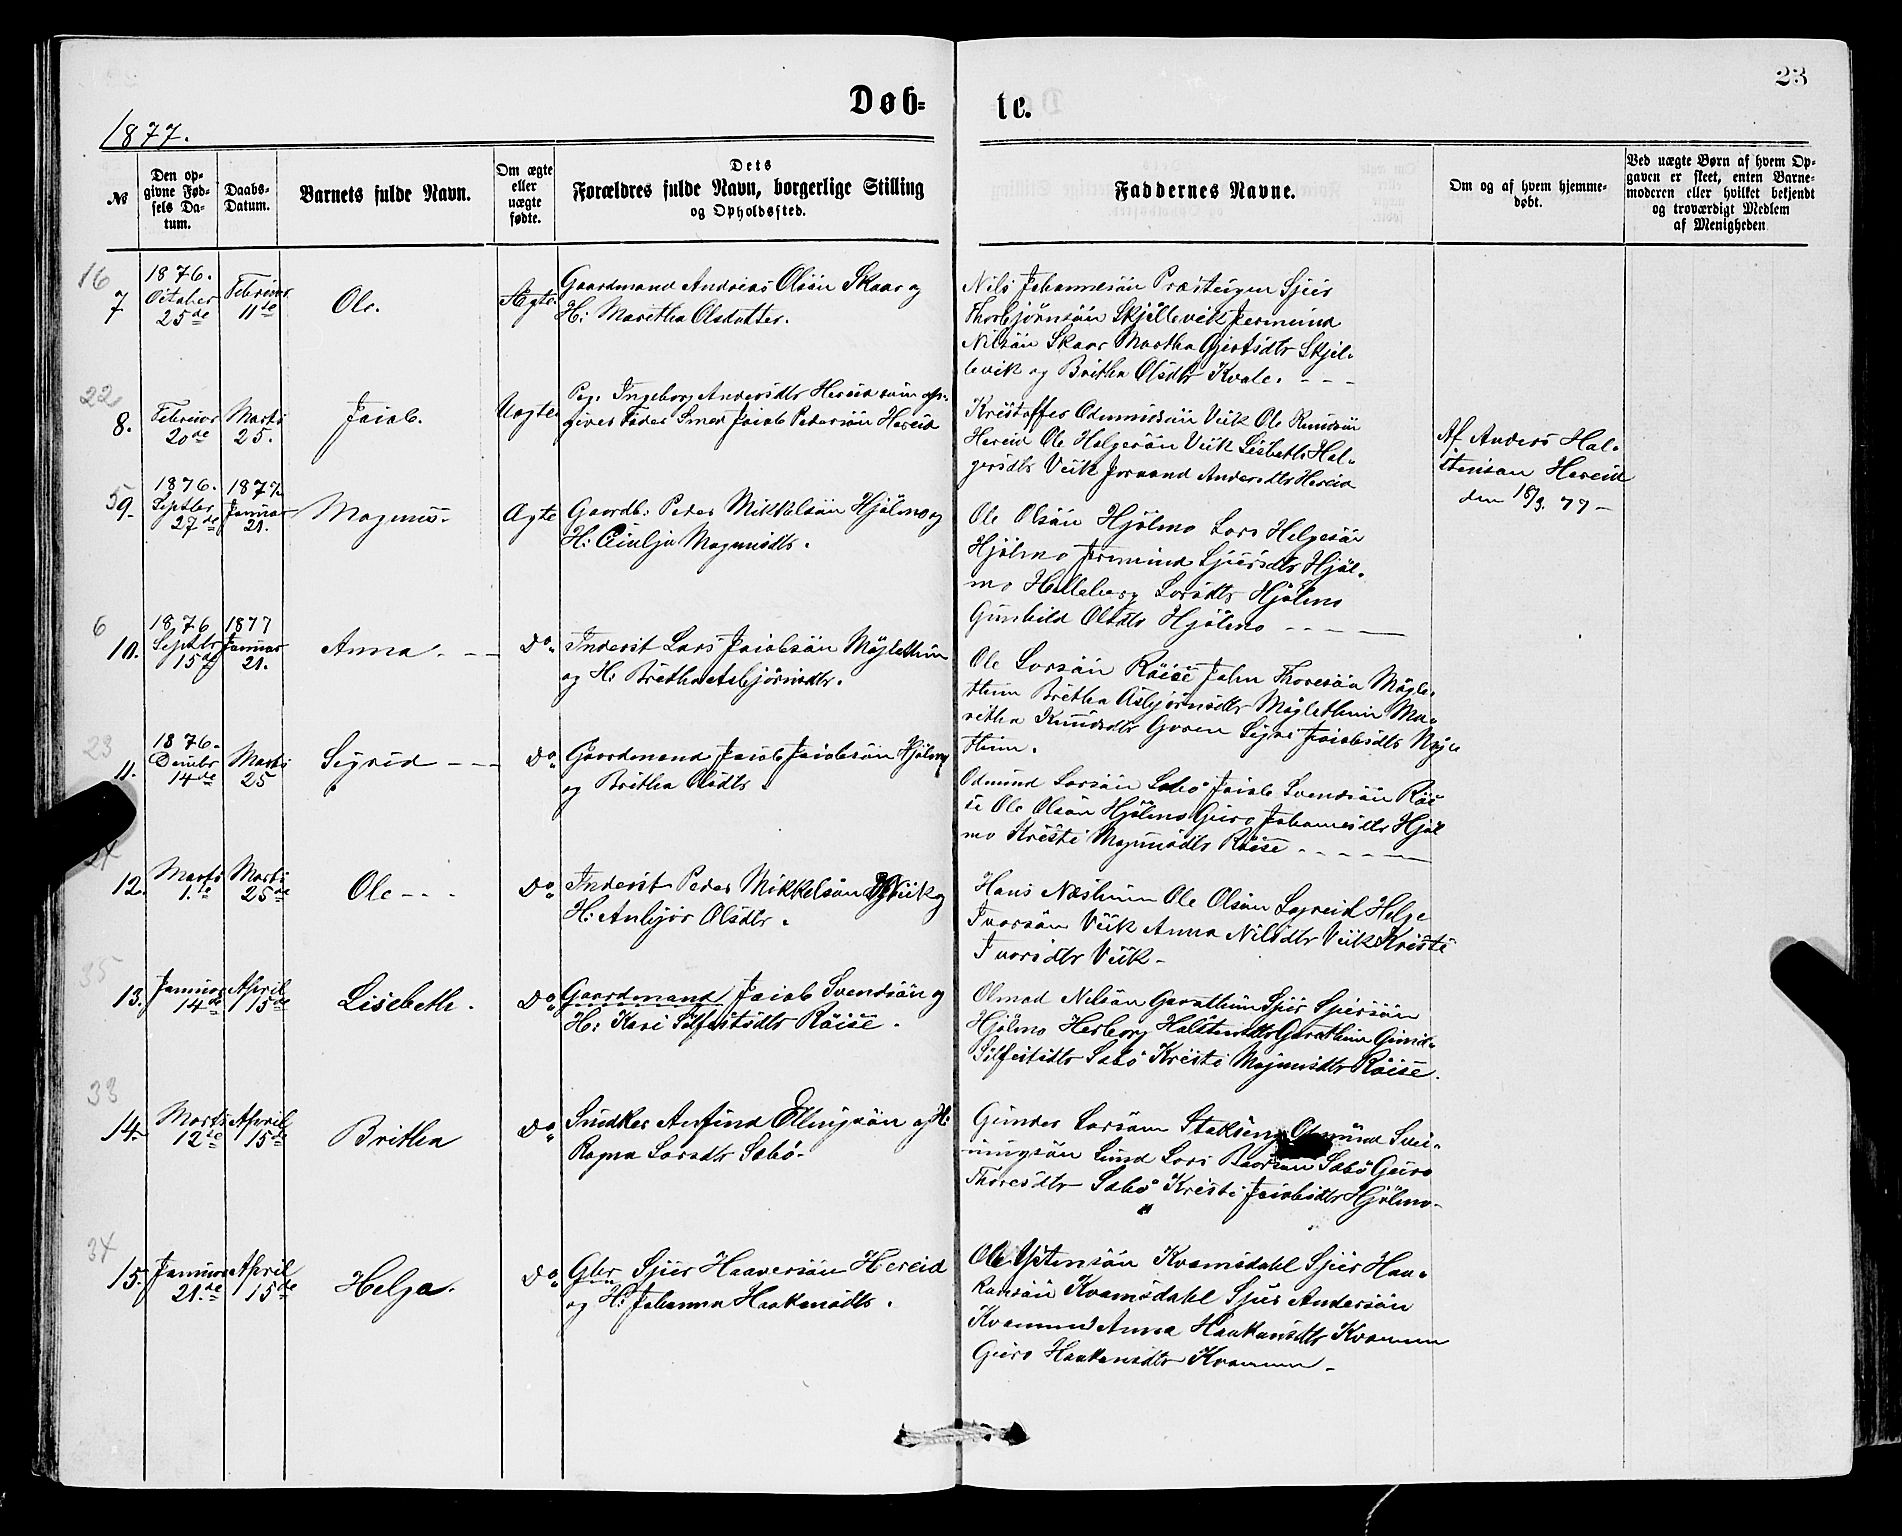 23
Døb-
te.
1877.
№
Den op-
givne Fød-
sels Da-
tum.
Daabs-
Datum.
Barnets fulde Navn.
Om ægte
eller
uægte
fødte.
Dets
Forældres fulde Navn, borgerlige Stilling
og Opholdssted.
Faddernes Navne.
Om og af hvem hjemme-
døbt.
Ved uægte Børn af hvem Op-
gaven er skeet, enten Barne-
moderen eller hvilket bekjendt
og troværdigt Medlem
af Menigheden
16
7
1876.
October
25de
Februar
11te
Ole.
Ægte
Gaardmand Andreas Olsön Skaar og
H: Maritha Olsdatter.
Nils Johannesön Præsteigen Sjur
Thorbjörnsön Skjellevik Jermund
Nilsön Skaar Martha Gjertsdtr Skjel-
levik og Britha Olsdtr Kvale. - - -
22
8.
Februar
20de
Marts
25.
Jacob.
Uægte
Pig. Ingeborg Andersdtr Hereid som op-
giver Fader Smed Jacob Pedersön Hereid
Kristoffer Odmundsön Viik Ole Knudsön
Hereid Ole Helgesön Viik Lisbeth Hel-
gesdtr Viik Joraand Andersdtr Hereid
Af Anders Hal-
stensen Hereid
den 18/3. 77 -
5
9.
1876.
Septbr
27de
1877.
Januar
21.
Magnus.
Ægte
Gaardb: Peder Mikkelsön Hjölmo og
H: Cicilja Magnusdtr.
Ole Olsön Hjölmo Lars Helgesön
Hjölmo Jermund Sjursdtr Hjöl-
mo Helleberg Larsdtr Hjölmo
Gunhild Olsdtr Hjölmo - - - -
6
10.
1876
Septbr
15de
1877
Januar
21.
Anna. - -
Do.
Inderst Lars Jacobsön Möglethun
og H: Britha Asbjörnsdtr.
Ole Larsön Röise John Thoresön Mögle-
thun Britha Asbjörnsdtr Mögletthun Ma-
ritha Knudsdtr Garen Sigri Jacobsdtr Mögle
thun.
23
11.
1876.
Decmbr
14de
Marts
25
Sigrid - - -
Do.
Gaardmand Jacob Jacobsön Hjölmo
og Britha Olsdtr.
Odmund Larsön Sæbö Jacob Svendsön Röi
se Ole Olsön Hjölmo Guro Johannesdtr Hjöl
mo Kristi Magnusdtr Röise - - - - -
12.
Marts
1.te
Marts
25de
Ole - - -
Do.
Inderst Peder Mikkelsön Viik og
H: Anbjör Olsdtr.
Hans Næsheim Ole Olsön Lægreid Helge
Ivarsön Viik Anna Nilsdtr Viik Kristi
Ivarsdtr Viik -
35
13.
Januar
14de
April
15de
Lisebeth.
Do.
Gaardmand Jacob Svendsön og
H: Kari Silfestsdtr Röise.
Olmod Nilsön Garathun Sjur Sjursön
Hjölmo Herborg Halstensdtr Garathun
Silfestsdtr Sæbö Kristi Magnusdtr Röise.
33
14.
Marts
12te
April
15de
Britha
Do.
Snidker Anfind Ellingsön og H:
Ragna Larsdtr Sæbö.
Gunder Larsön Odmund Svei-
nungsön Lund Lars Sæbö Guro
Thoresdtr Sæbö Kristi Jacobsdtr Hjölmo -
34
15.
Januar
21.de
April
15de
Helga.
Do.
Gbr Sjur Haaversön Hereid
og H: Johanna Haakensdtr.
Ole Ystensön Kvamsdahl Sjur Haa-
kensön Kvamsdahl Sjur Andersön
Kvammen Anna Haakensdtr Kvammen
Guro Haakensdtr Kvammen -